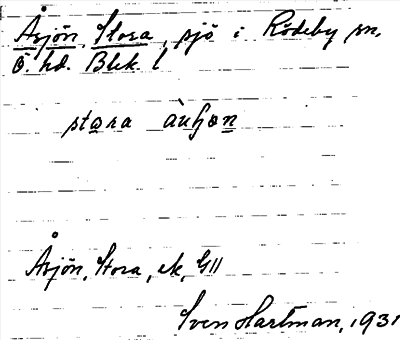 Åsjön, Stora, sjö i Rödeby sn.
Ö. hd. Blek. l
stora
Åsjön, Stora, ek, GII
Sven Hartman, 1931